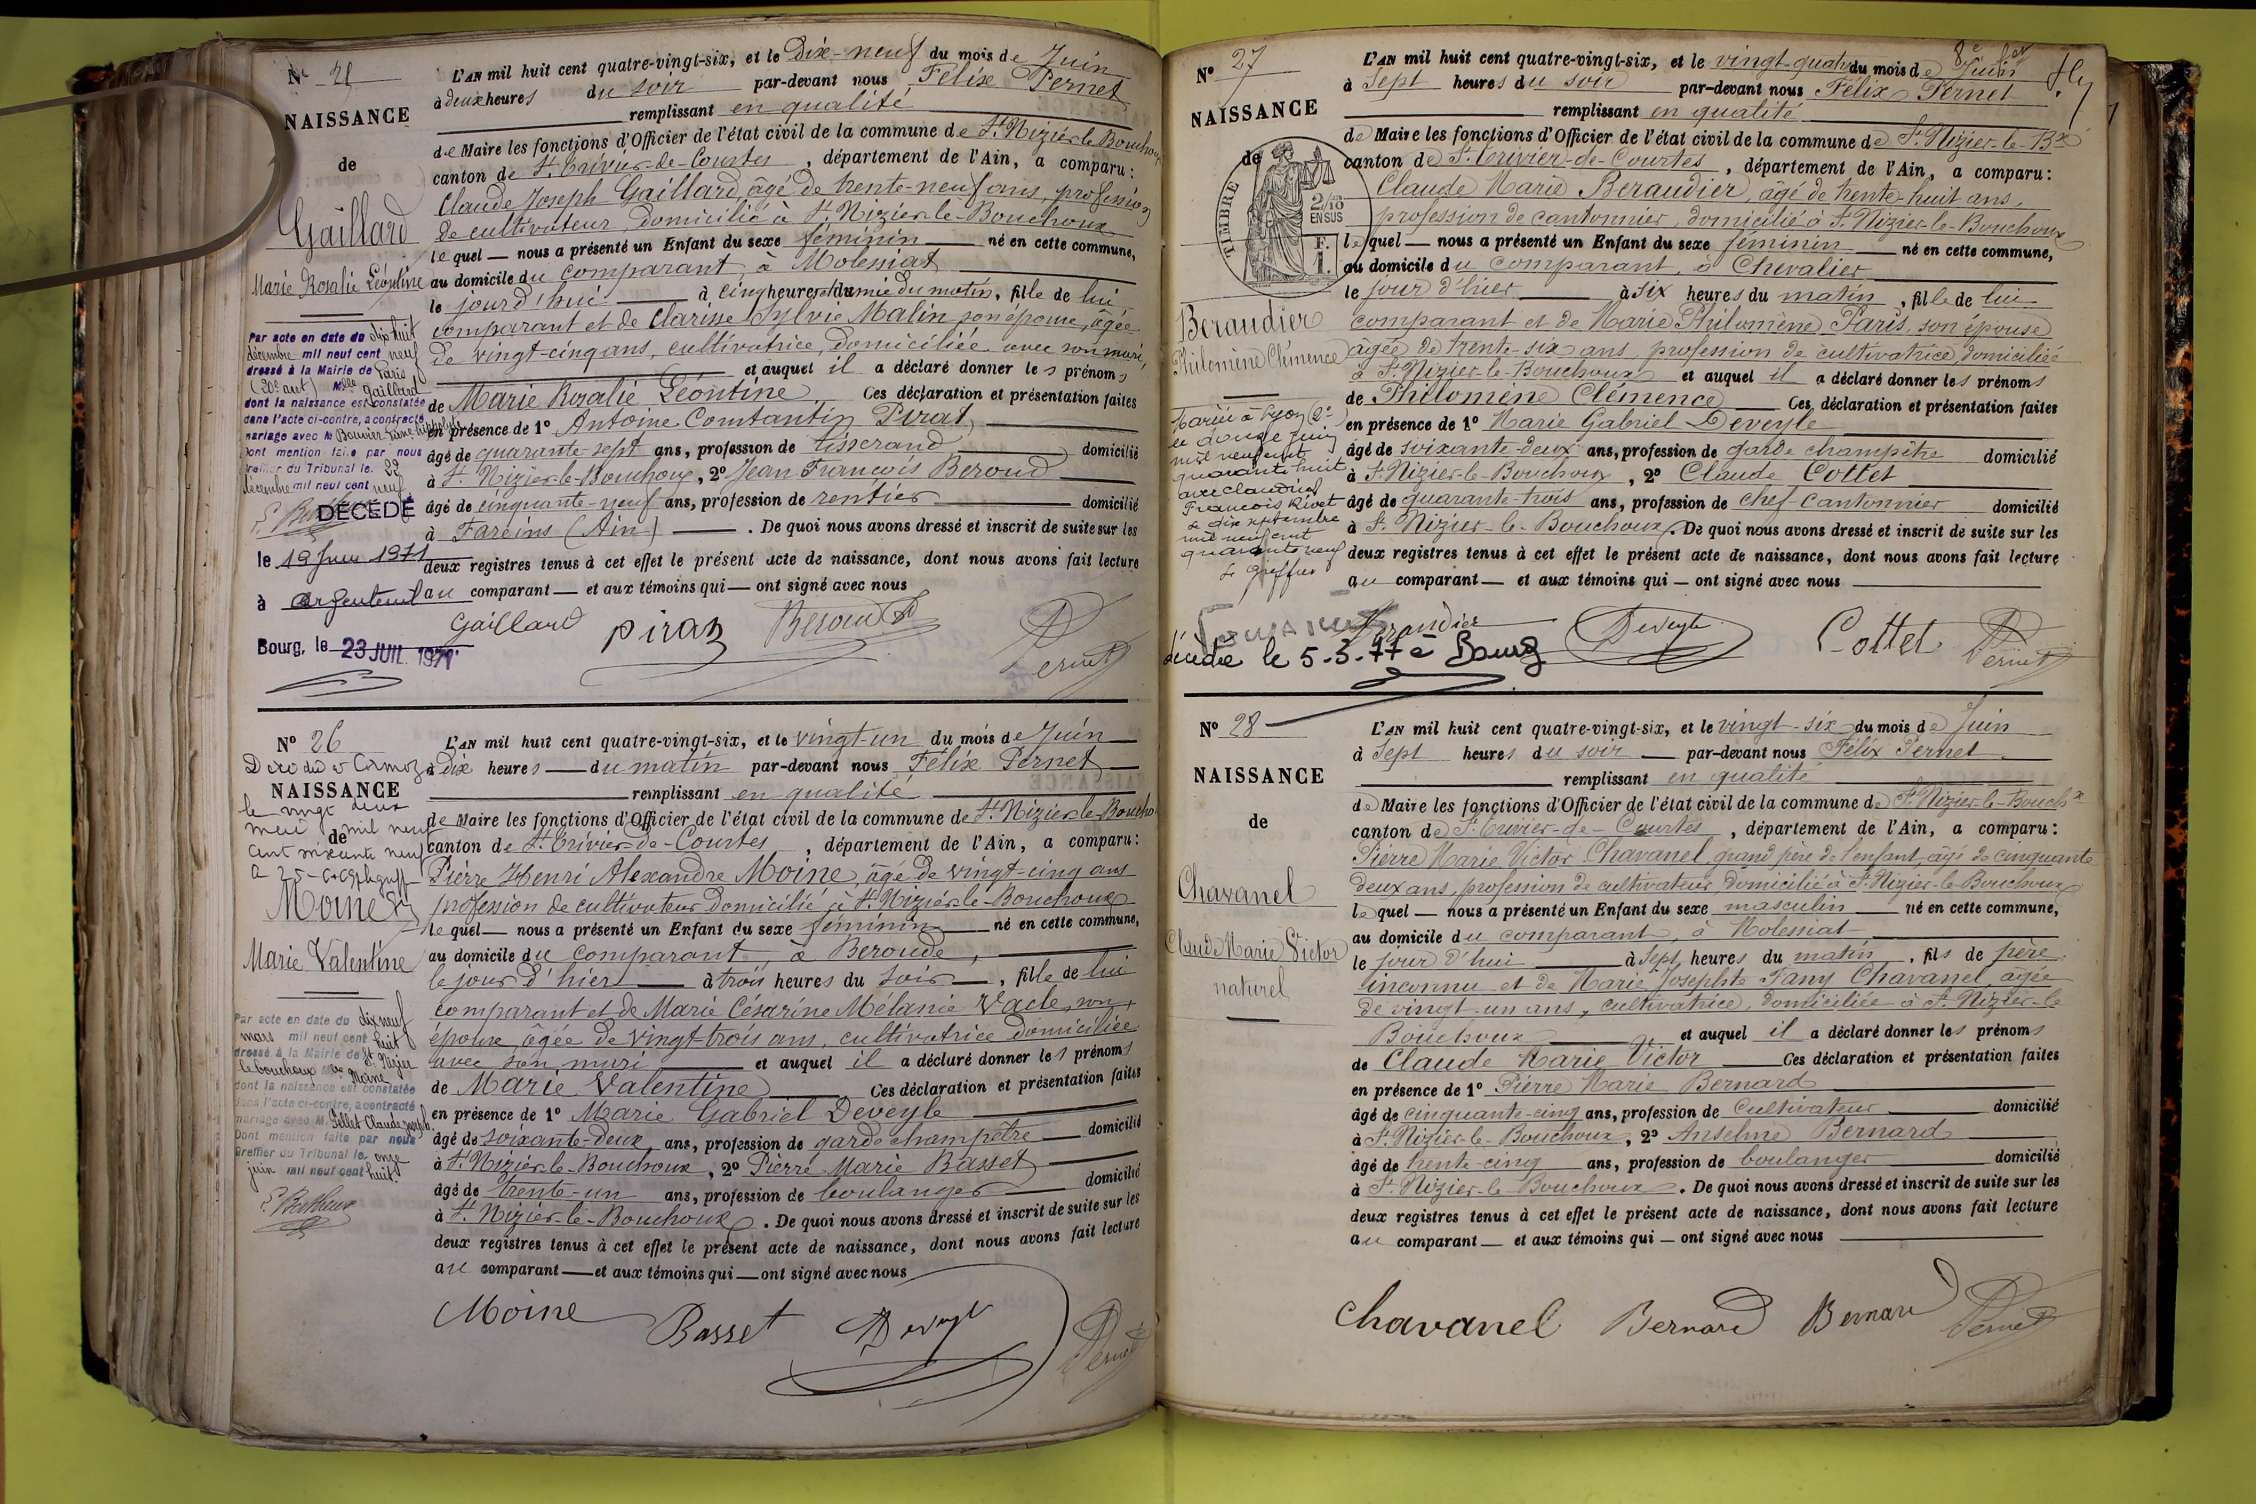 N° 25
NAISSANCE
de
Gaillard
Marie Rosalie Léontine
Par acte en date du dix huit
décembre mil neuf cent neuf
dressé à la Mairie de Paris
(20e arrt) Mlle Gaillard
dont la naissance est constatée
dans l'acte ci-contre, a contracté
mariage avec M. Bouvier
Dont mention faite par nous
Greffier du Tribunal le 22
décembre mil neuf cent neuf
DÉCÉDÉ
le 19 Juin 1971
à Argenteuil
Bourg, le 23 JUIL. 1971
L'AN mil huit cent quatre-vingt-six, et le Dix-neuf du mois de Juin
à deux heures du soir par-devant nous Félix Pernet
remplissant en qualité
de Maire les fonctions d'Officier de l'état civil de la commune de St Nizier-le-Bouchoux
canton de St Trivier-de-Courtes, département de l'Ain, a comparu:
Claude Joseph Gaillard, âgé de trente-neuf ans, profession
de cultivateur, domicilié à St Nizier-le-Bouchoux
lequel — nous a présenté un Enfant du sexe féminin né en cette commune,
au domicile du comparant, à Molessiat
le jour d'hui à cinq heures et demie du matin, fille de lui
comparant et de Clarisse Sylvie Malin son épouse, âgée
de vingt-cinq ans, cultivatrice, domiciliée avec son mari,
et auquel il a déclaré donner les prénoms
de Marie Rosalie Léontine Ces déclaration et présentation faites
en présence de 1° Antoine Constantin Pirat
âgé de quarante-sept ans, profession de tisserand domicilié
à St Nizier-le-Bouchoux, 2° Jean François Beroud
âgé de cinquante-neuf ans, profession de rentier domicilié
à Fareins (Ain). De quoi nous avons dressé et inscrit de suite sur les
deux registres tenus à cet effet le présent acte de naissance, dont nous avons fait lecture
au comparant — et aux témoins qui — ont signé avec nous
Gaillard piraz Beroud Pernet
N° 26
Décédée à Cormoz
NAISSANCE
le vingt deux
mai mil neuf
de
cent soixante neuf
Moine
Marie Valentine
Par acte en date du dix neuf
mars mil neuf cent huit
dressé à la Mairie de St Nizier
le bouchoux Mlle Moine
dont la naissance est constatée
dans l'acte ci-contre, a contracté
mariage avec M. Pellet Claude Joseph
Dont mention faite par nous
Greffier du Tribunal le onze
juin mil neuf cent huit
L'AN mil huit cent quatre-vingt-six, et le vingt-un du mois de Juin
à Dix heures — du matin par-devant nous Félix Pernet
remplissant en qualité
de Maire les fonctions d'Officier de l'état civil de la commune de St Nizier-le-Boucho
canton de St Trivier-de-Courtes, département de l'Ain, a comparu:
Pierre Henri Alexandre Moine, âgé de vingt-cinq ans
profession de cultivateur domicilié à St Nizier-le-Bouchoux
lequel — nous a présenté un Enfant du sexe féminin né en cette commune,
au domicile du comparant, à Beroude,
le jour d'hier à trois heures du soir, fille de lui
comparant et de Marie Césarine Mélanie Vacle, son
épouse, âgée de vingt-trois ans, cultivatrice domiciliée
avec son mari et auquel il a déclaré donner les prénoms
de Marie Valentine Ces déclaration et présentation faites
en présence de 1° Marie Gabriel Deveyle
âgé de soixante-deux ans, profession de garde champêtre domicilié
à St Nizier-le-Bouchoux, 2° Pierre Marie Basset
âgé de trente-un ans, profession de boulanger domicilié
à St Nizier-le-Bouchoux. De quoi nous avons dressé et inscrit de suite sur les
deux registres tenus à cet effet le présent acte de naissance, dont nous avons fait lecture
au comparant — et aux témoins qui — ont signé avec nous
Moine Basset Deveyle Pernet
N° 27
NAISSANCE
de
TIMBRE
2/10
EN SUS
F.
1.
Beraudier
Philomène Clémence
Mariée à Lyon (2e)
le douze juin
mil neuf cent
quarante huit
avec Claudius
François Rivet
le dix septembre
mil neuf cent
quarante neuf
Le Greffier
8e
L'AN mil huit cent quatre-vingt-six, et le vingt-quatre du mois de Juin
à Sept heures du soir par-devant nous Félix Pernet
remplissant en qualité
de Maire les fonctions d'Officier de l'état civil de la commune de St Nizier-le-Bx
canton de St Trivier-de-Courtes, département de l'Ain, a comparu:
Claude Marie Beraudier, âgé de trente-huit ans,
profession de cantonnier, domicilié à St Nizier-le-Bouchoux
lequel — nous a présenté un Enfant du sexe féminin né en cette commune,
au domicile du comparant, à Chevalier
le jour d'hier à six heures du matin, fille de lui
comparant et de Marie Philomène Paris, son épouse
âgée de trente-six ans, profession de cultivatrice, domiciliée
à St Nizier-le-Bouchoux et auquel il a déclaré donner les prénoms
de Philomène Clémence Ces déclaration et présentation faites
en présence de 1° Marie Gabriel Deveyle
âgé de soixante-deux ans, profession de garde champêtre domicilié
à St Nizier-le-Bouchoux, 2° Claude Cottet
âgé de quarante-trois ans, profession de chef-cantonnier domicilié
à St Nizier-le-Bouchoux. De quoi nous avons dressé et inscrit de suite sur les
deux registres tenus à cet effet le présent acte de naissance, dont nous avons fait lecture
au comparant — et aux témoins qui — ont signé avec nous
Beraudier Deveyle Cottet Pernet
décédée le 5.3.77 à Bourg
N° 28
NAISSANCE
de
Chavanel
Claude Marie Victor
naturel
L'AN mil huit cent quatre-vingt-six, et le vingt-six du mois de Juin
à Sept heures du soir — par-devant nous Félix Pernet
remplissant en qualité
de Maire les fonctions d'Officier de l'état civil de la commune de St Nizier-le-Bouchx
canton de St Trivier-de-Courtes, département de l'Ain, a comparu:
Pierre Marie Victor Chavanel, grand père de l'enfant, âgé de cinquante
deux ans, profession de cultivateur, domicilié à St Nizier-le-Bouchoux
lequel — nous a présenté un Enfant du sexe masculin né en cette commune,
au domicile du comparant, à Molessiat
le jour d'hui à Sept heures du matin, fils de père
inconnu et de Marie Josephte Fany Chavanel âgée
de vingt-un ans, cultivatrice, domiciliée à St Nizier-le
Bouchoux et auquel il a déclaré donner les prénoms
de Claude Marie Victor Ces déclaration et présentation faites
en présence de 1° Pierre Marie Bernard
âgé de cinquante-cinq ans, profession de Cultivateur domicilié
à St Nizier-le-Bouchoux, 2° Anselme Bernard
âgé de trente-cinq ans, profession de boulanger domicilié
à St Nizier-le-Bouchoux. De quoi nous avons dressé et inscrit de suite sur les
deux registres tenus à cet effet le présent acte de naissance, dont nous avons fait lecture
au comparant — et aux témoins qui — ont signé avec nous
Chavanel Bernard Bernard Pernet